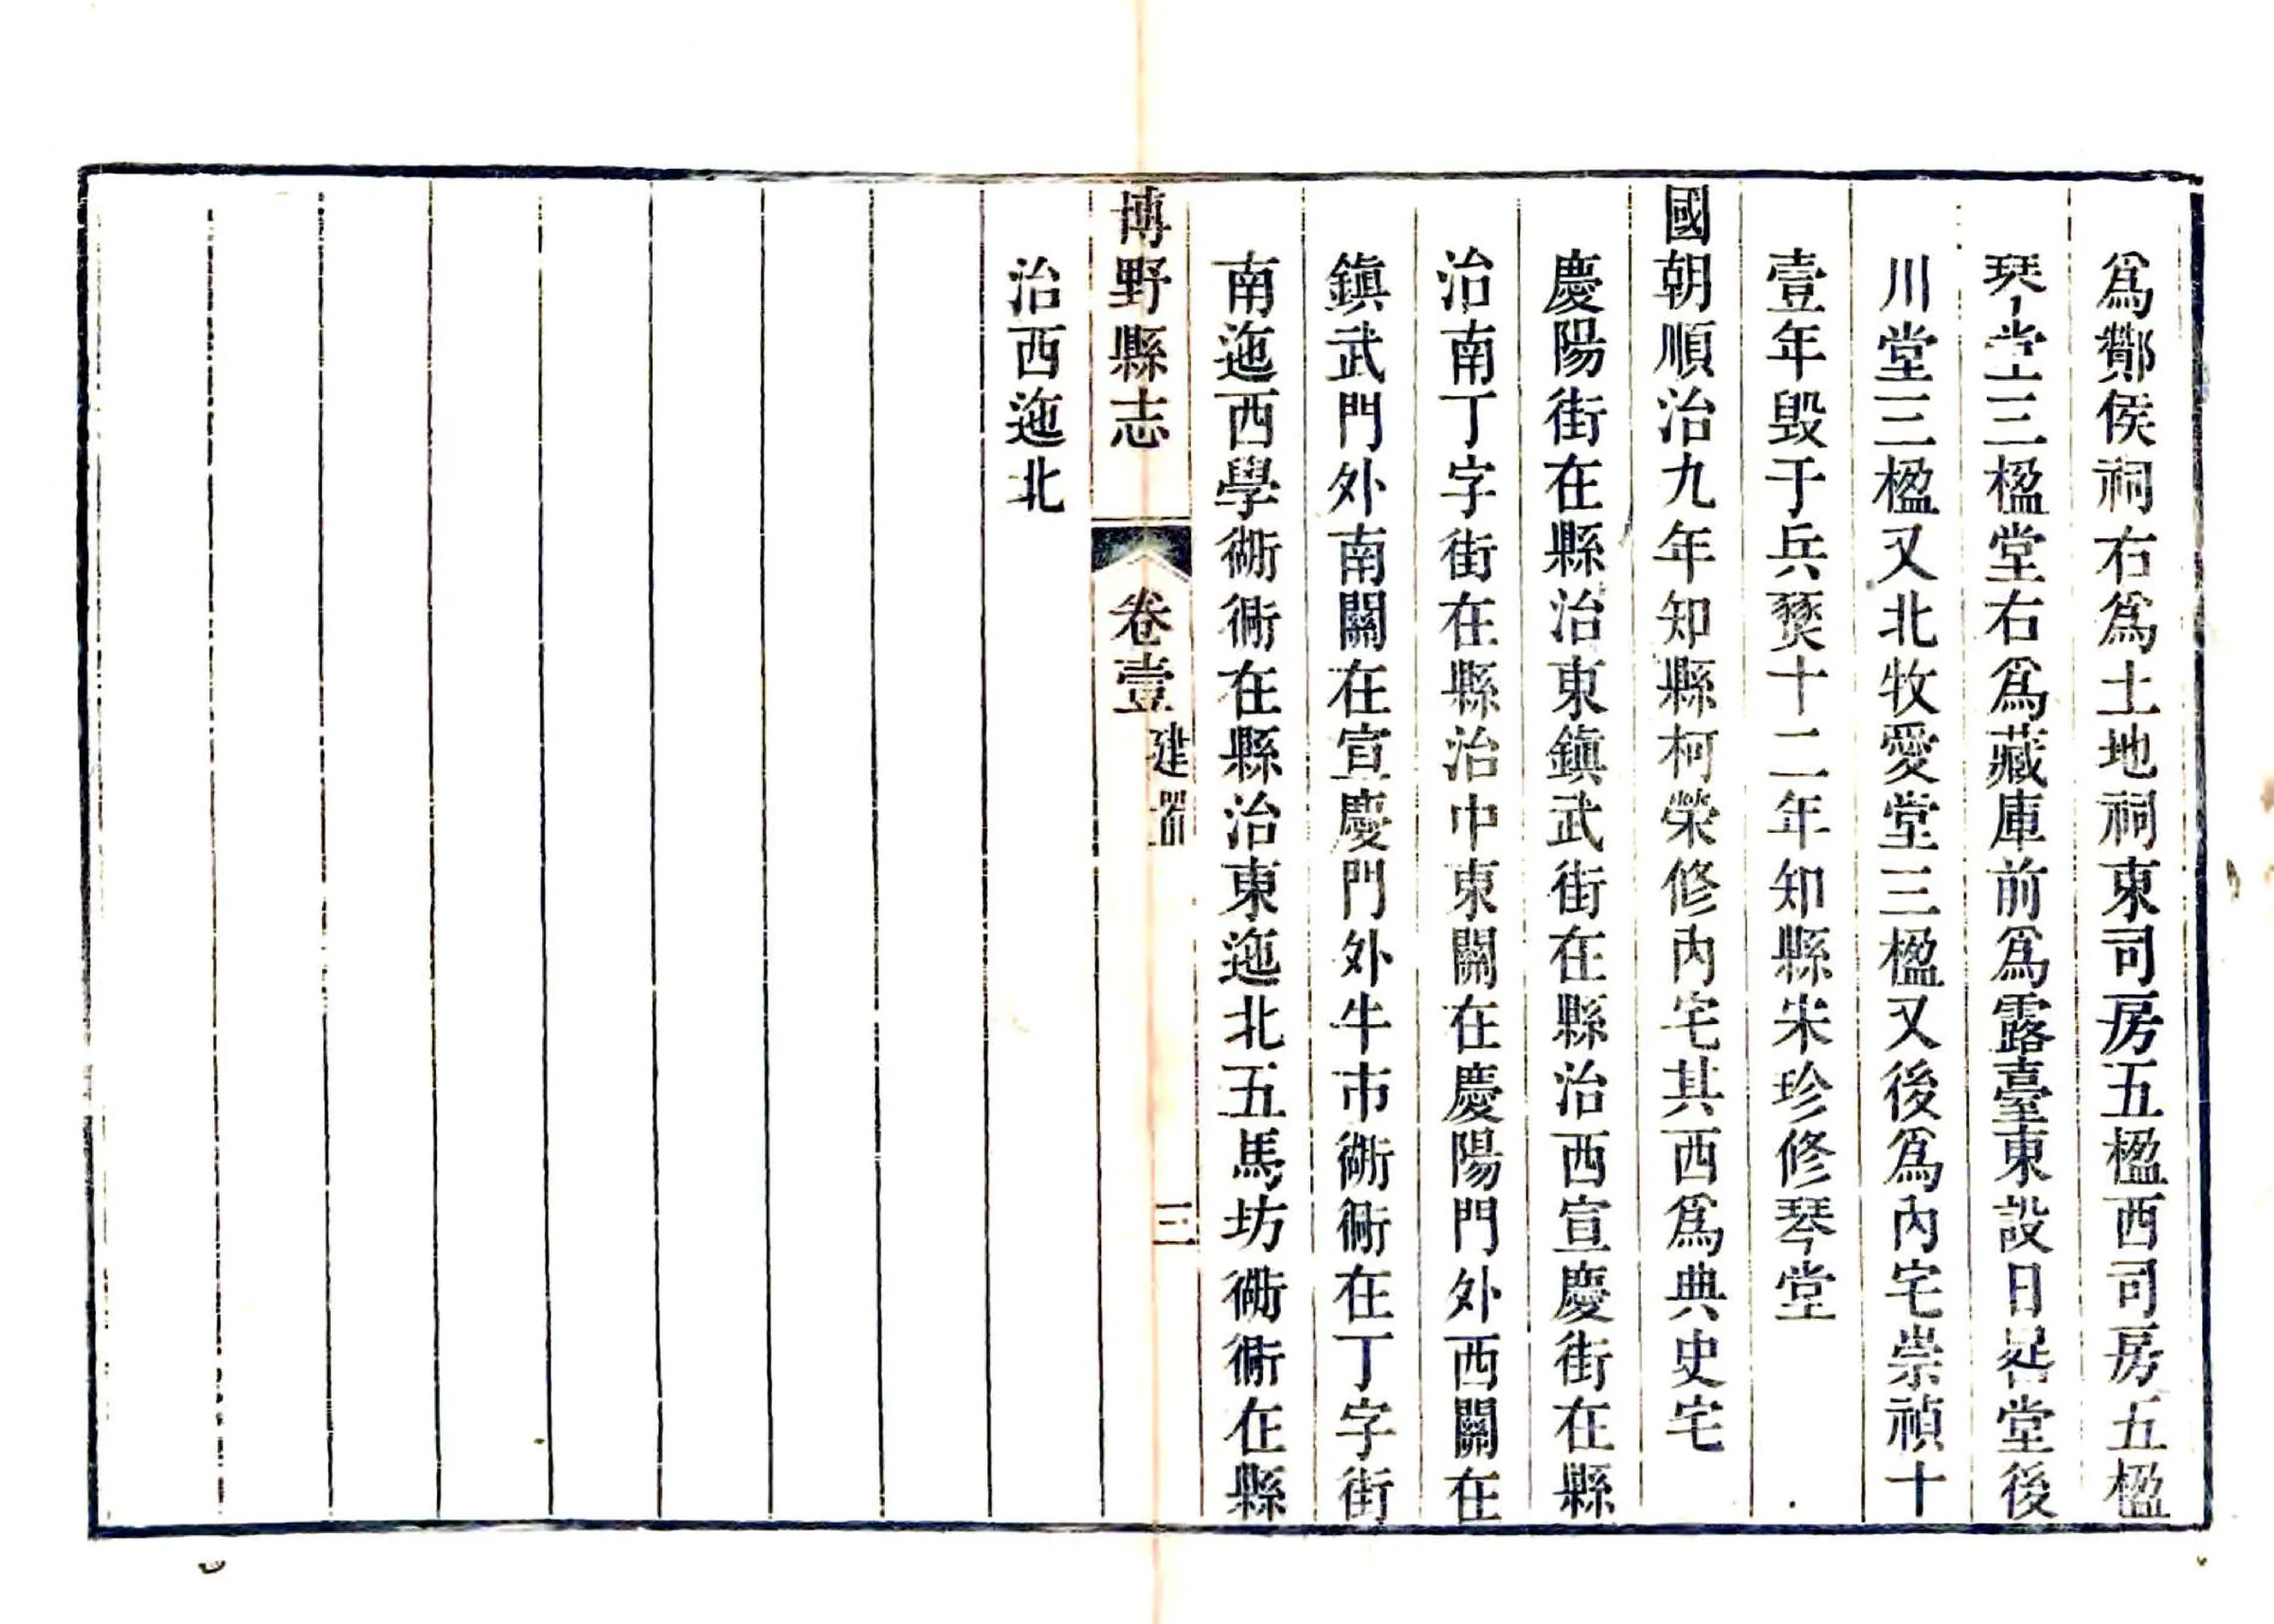 爲酇侯祠右爲土地祠東司房五楹西司房五楹
琴堂三楹堂右爲藏庫前爲露臺東設日晷堂後
川堂三楹又北牧愛堂三楹又後爲內宅崇禎十
壹年毀于兵燹十二年知縣朱珍修琴堂
國朝順治九年知縣柯榮修內宅其西爲典史宅
慶陽街在縣治東鎭武街在縣治西宣慶街在縣
治南丁字街在縣治中東關在慶陽門外西關在
鎭武門外南關在宣慶門外牛市衚衕在丁字街
南迤西學衚衕在縣治東迤北五馬坊衚衕在縣
博野縣志 卷壹 建置 三
治西迤北